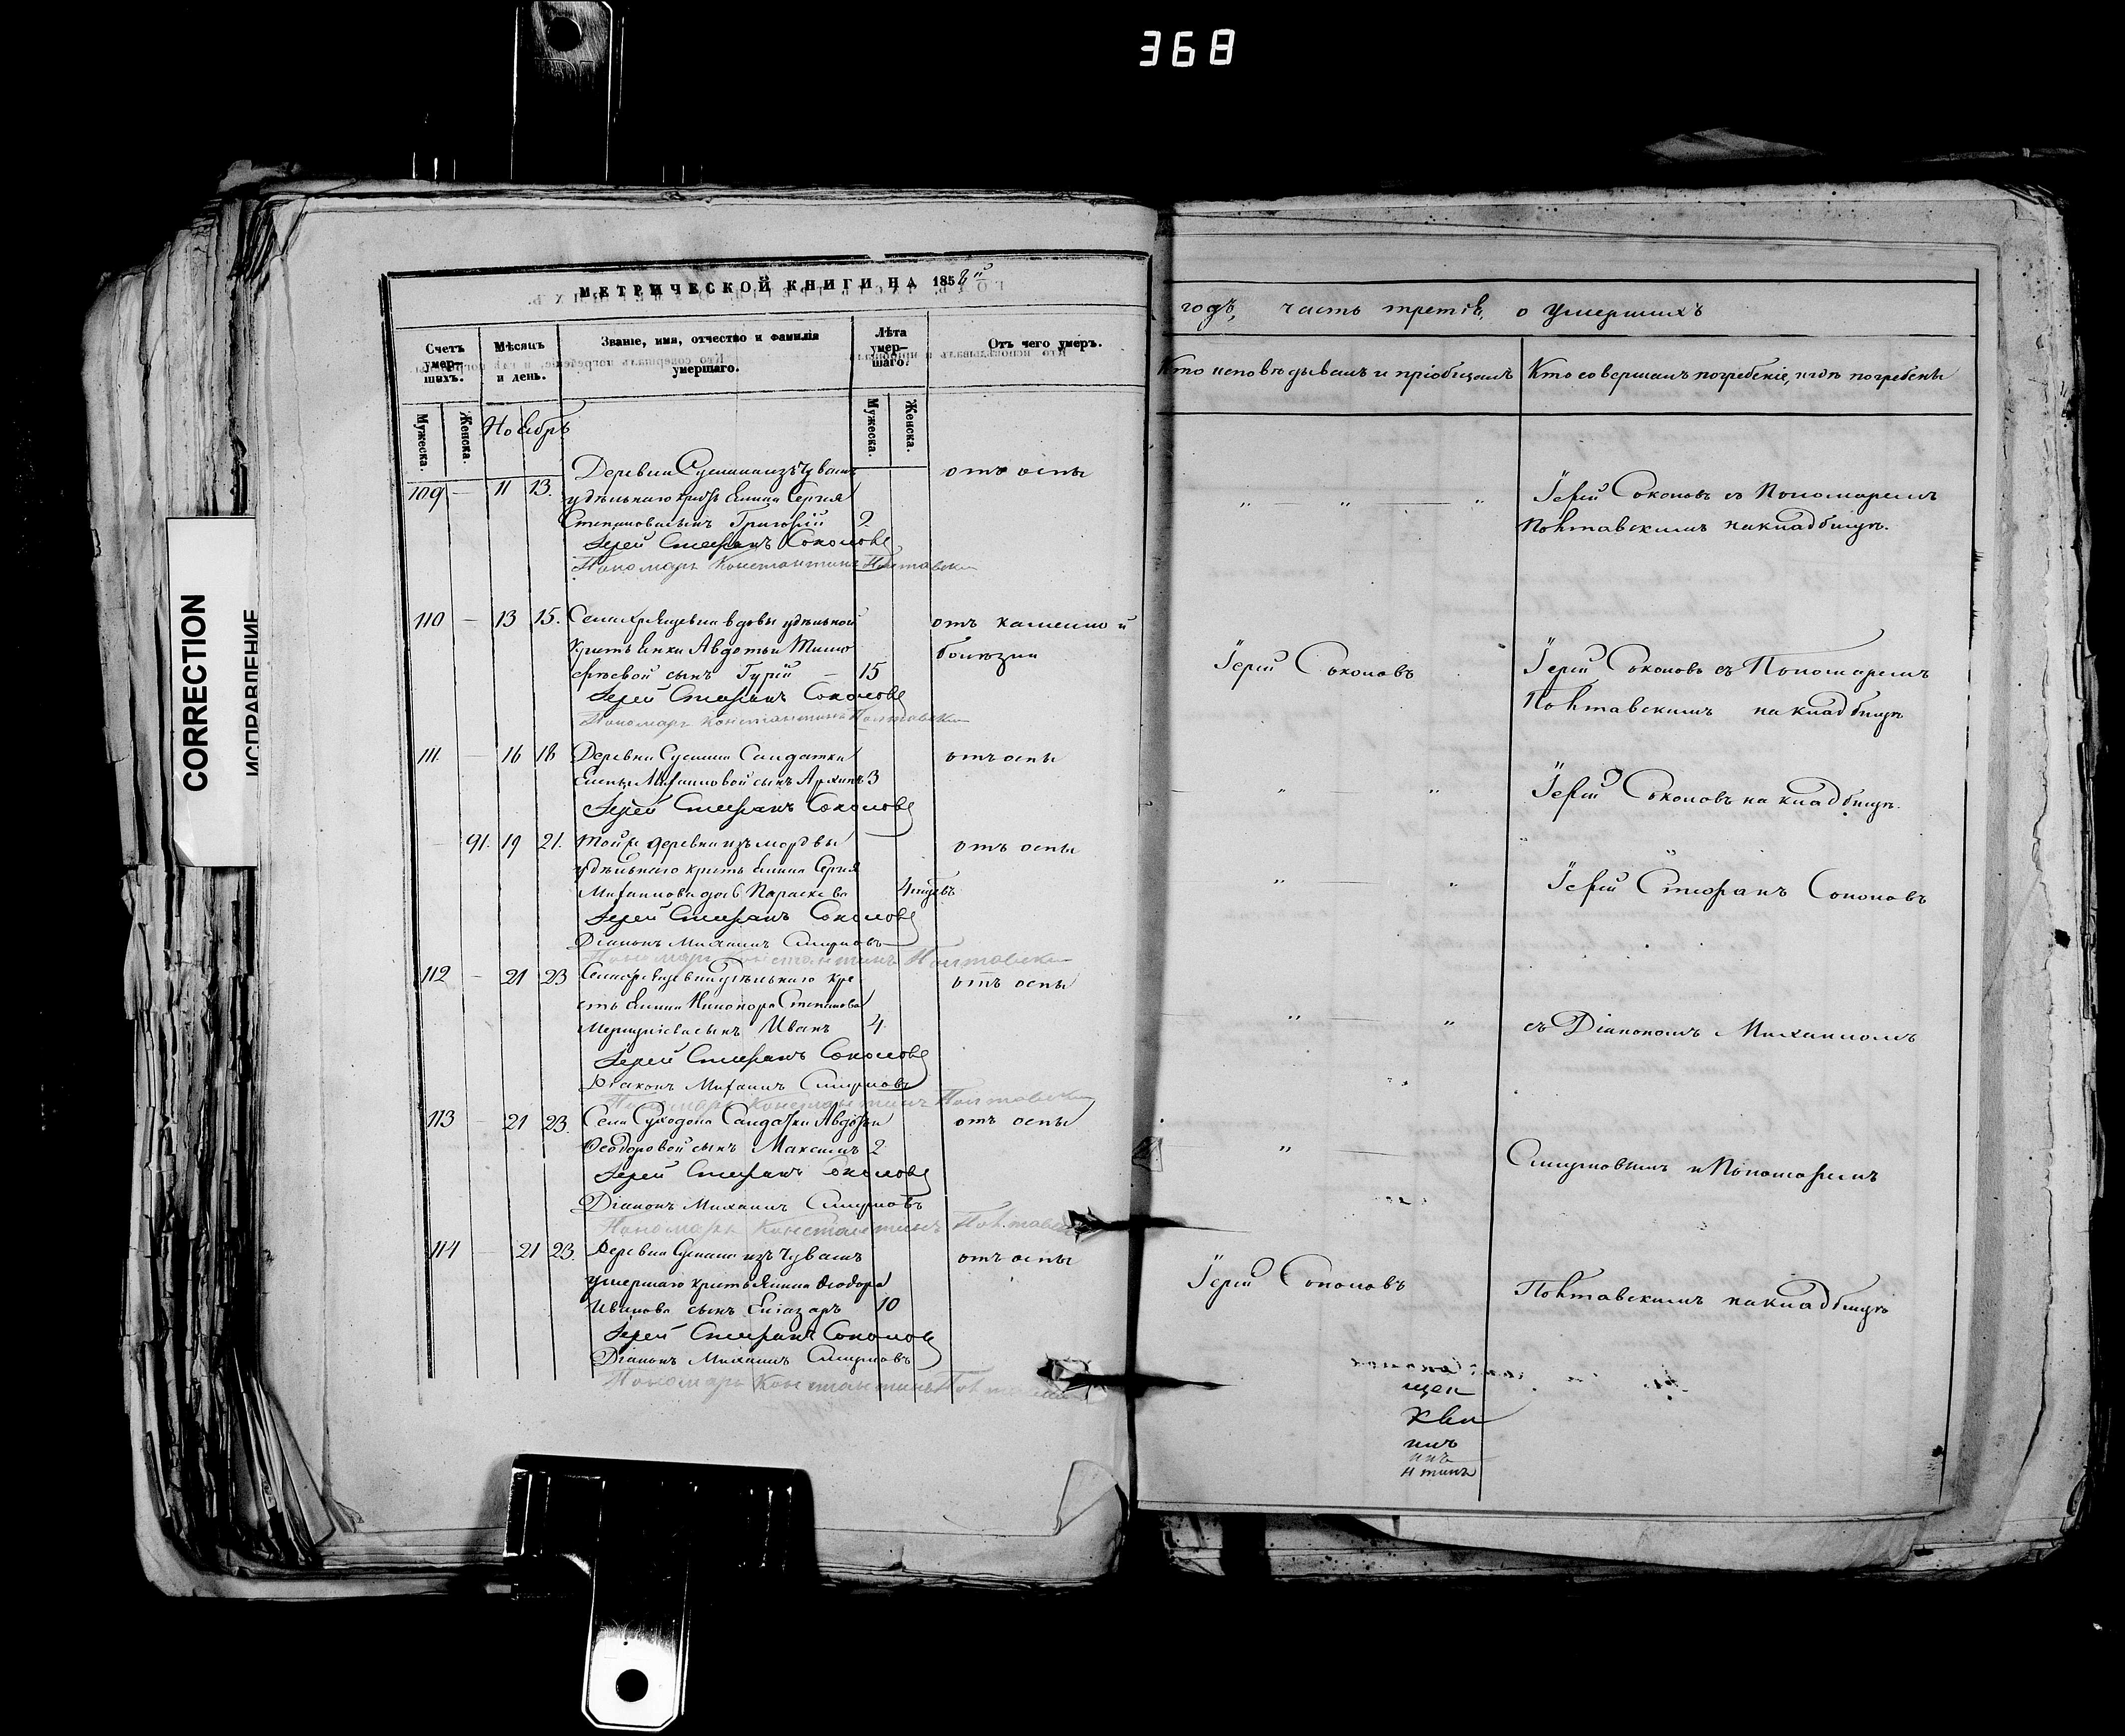 368
CORRECTION
ИСПРАВЛЕНИЕ
МЕТРИЧЕСКОЙ КНИГИ НА 1858й
Счетъ умер-шихъ.
Мѣсяцъ и день.
Званіе, имя, отчество и фамилія умершаго.
Лѣта умер-шаго.
Отъ чего умеръ.
Мужеска.
Женска.
Ноябрь
Мужеска.
Женска.
Деревни изъ Чувашъ отъ оспы
109 — 11 13. удѣльнаго Сергія
Степанова сынъ Григорій 2
Іерей Стефанъ Соколовъ
Пономарь Константинъ Полтавскій
110 — 13 15. Села вдовы удѣльной отъ каменной
Авдотьи Тимо болѣзни
феевой сынъ Гурій — 15
Іерей Стефанъ Соколовъ
Пономарь Константинъ Полтавскій
111. — 16 18 Деревни Салдатки отъ оспы
Елены Михаиловой сынъ Архипъ 3
Іерей Стефанъ Соколовъ
91. 19 21. Той же деревни изъ мордвы отъ оспы
удѣльнаго Сергія
Михаилова дочь Параскева 4
Іерей Стефанъ Соколовъ
Діаконъ Михаилъ Смирновъ
Пономарь Константинъ Полтавскій
112 — 21 23 Села удѣльнаго кре отъ оспы
Никонора Степанова
сынъ Иванъ 4.
Іерей Стефанъ Соколовъ
Діаконъ Михаилъ Смирновъ
Пономарь Константинъ Полтавскій
113 — 21 23. Села Суходола Салдатки Авдотьи отъ оспы
Ѳеодоровой сынъ Максимъ 2
Іерей Стефанъ Соколовъ
Діаконъ Михаилъ Смирновъ
Пономарь Константинъ Полтавскій
114 — 21 23. Деревни изъ Чувашъ отъ оспы
умершаго Ѳеодора
Иванова сынъ Елiазаръ 10
Іерей Стефанъ Соколовъ
Діаконъ Михаилъ Смирновъ
Пономарь Константинъ Полтавскій
годъ, часть третія, о умершихъ
Кто исповѣдывалъ и пріобщалъ
Кто совершалъ погребеніе, и гдѣ погребены
" — " — " Іерей Соколовъ съ Пономаремъ
Полтавскимъ на кладбищѣ.
Іерей Соколовъ
Іерей Соколовъ съ Пономаремъ
Полтавскимъ на кладбищѣ
" — " Іерей Соколовъ на кладбищѣ.
" — " Іерей Стефанъ Соколовъ
" — " съ Діакономъ Михаиломъ
" — Смирновымъ и Пономаремъ
Іерей Соколовъ
Полтавскимъ на кладбищѣ